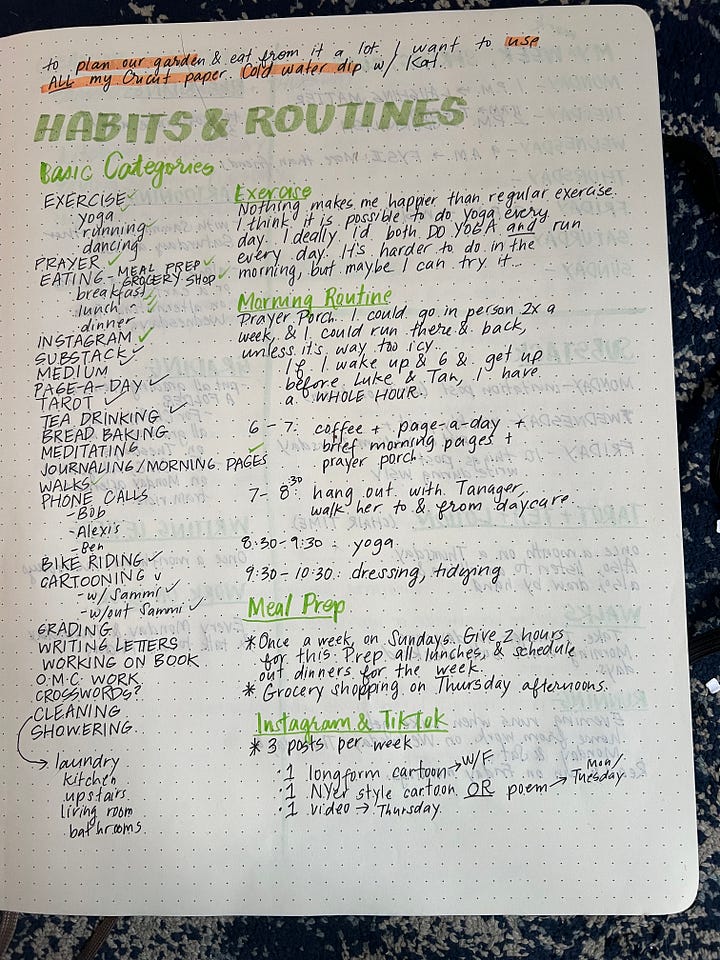 to plan our garden & eat from it a lot. I want to use
ALL my Cricut paper. Cold water dip w/ Kat.
HABITS & ROUTINES
Basic Categories
EXERCISE ✓
· yoga ✓
· running
· dancing
PRAYER ✓
EATING - MEAL PREP ✓
- GROCERY SHOP ✓
· breakfast ✓
· lunch ✓
· dinner
INSTAGRAM ✓
SUBSTACK ✓
MEDIUM
PAGE-A-DAY ✓
TAROT ✓
TEA DRINKING ✓
BREAD BAKING
MEDITATING
JOURNALING/MORNING PAGES ✓
WALKS ✓
PHONE CALLS
- Bob
- Alexis
- Ben
BIKE RIDING ✓
CARTOONING ✓
- w/ Sammi ✓
- w/out Sammi ✓
GRADING
WRITING LETTERS
WORKING ON BOOK
O.M.C. WORK
CROSSWORDS?
CLEANING
SHOWERING
→ laundry
kitchen
upstairs
living room
bathrooms
Exercise
Nothing makes me happier than regular exercise.
I think it is possible to do yoga every
day. Ideally I'd both DO YOGA and run
every day. It's harder to do in the
morning, but maybe I can try it...
Morning Routine
Prayer Porch. I could go in person 2x a
week, & I could run there & back,
unless it's way too icy.
If I wake up @ 6 & get up
before Luke & Tan, I have
a WHOLE HOUR.
6-7: coffee + page-a-day +
brief morning pages +
prayer porch.
7-8:30: hang out with Tanager,
walk her to & from daycare.
8:30-9:30: yoga
9:30-10:30: dressing, tidying
Meal Prep
* Once a week, on Sundays. Give 2 hours
for this. Prep all lunches, & schedule
out dinners for the week.
* Grocery shopping on Thursday afternoons.
Instagram & TikTok
* 3 posts per week
· 1 longform cartoon → W/F
· 1 NYer style cartoon OR poem → Mon/Tuesday
· 1 video → Thursday